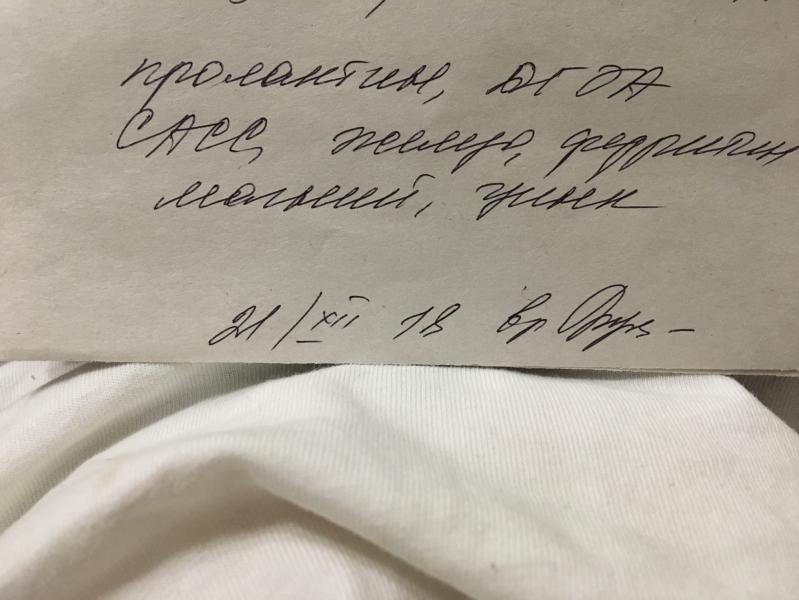 пролактин, ДГЭА
САСС, железо, ферритин
магний, цинк
21/XII 18 вр